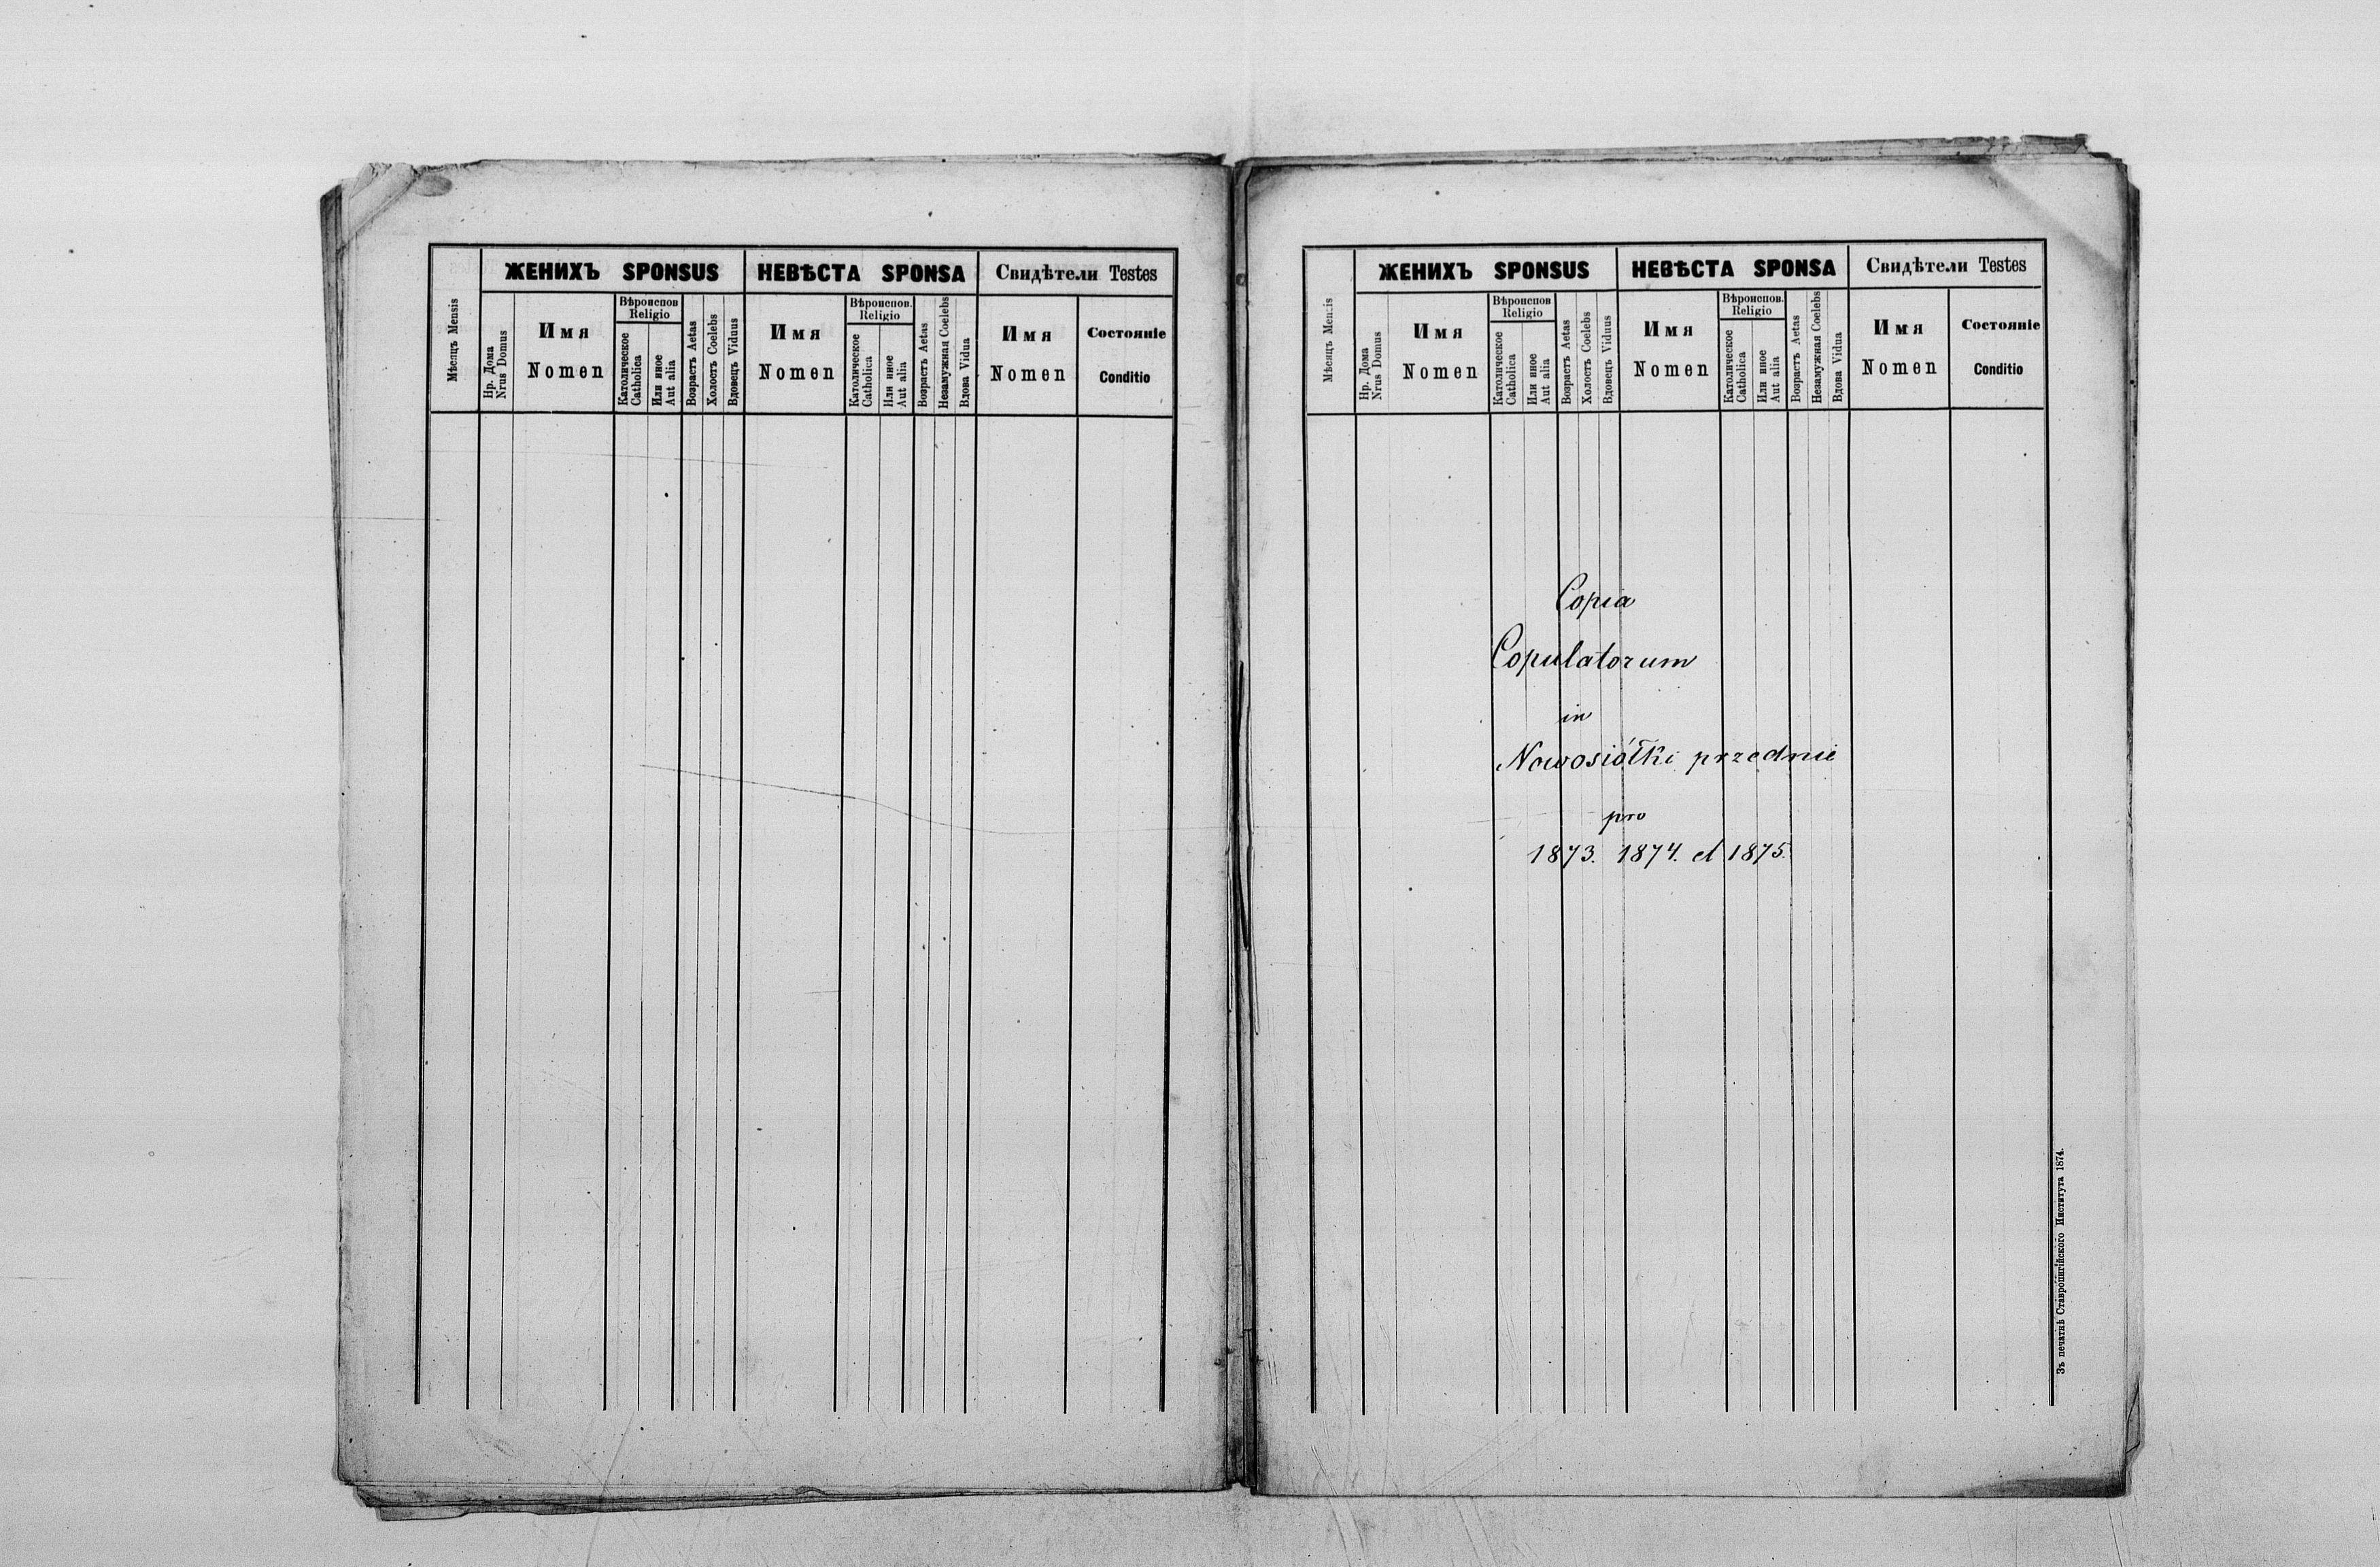 Мѣсяцъ Mensis
ЖЕНИХЪ SPONSUS
НЕВѢСТА SPONSA
Свидѣтели Testes
Нр. Дома
Nrus Domus
Имя
Nomen
Вѣроиспов
Religio
Католическое
Catholica
Или иное
Aut alia
Возрастъ Aetas
Холостъ Coelebs
Вдовецъ Viduus
Имя
Nomen
Вѣроиспов.
Religio
Католическое
Catholica
Или иное
Aut alia
Возрастъ Aetas
Незамужная Coelebs
Вдова Vidua
Имя
Nomen
Состояніе
Conditio
Мѣсяцъ Mensis
ЖЕНИХЪ SPONSUS
НЕВѢСТА SPONSA
Свидѣтели Testes
Нр. Дома
Nrus Domus
Имя
Nomen
Вѣроиспов
Religio
Католическое
Catholica
Или иное
Aut alia
Возрастъ Aetas
Холостъ Coelebs
Вдовецъ Viduus
Имя
Nomen
Вѣроиспов.
Religio
Католическое
Catholica
Или иное
Aut alia
Возрастъ Aetas
Незамужная Coelebs
Вдова Vidua
Имя
Nomen
Состояніе
Conditio
Copia
Copulatorum
in
Nowosiółki przednie
pro
1873. 1874. et 1875.
Зъ печатнѣ Ставропигійского Института 1874.